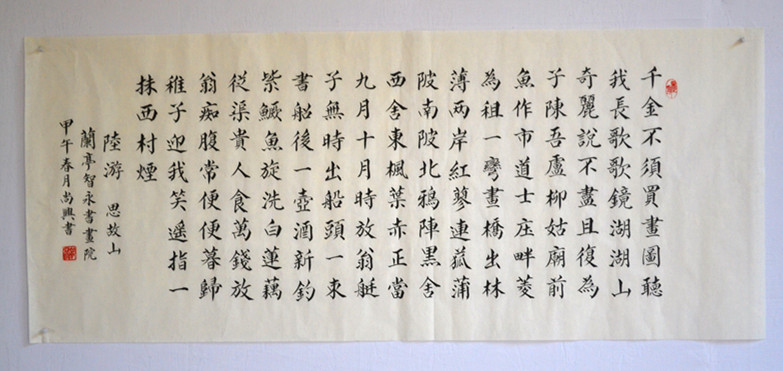 千金不須買畫圖聽
我長歌歌鏡湖湖山
奇麗說不盡且復為
子陳吾盧柳姑廟前
魚作市道士庄畔菱
為租一彎畫橋出林
薄兩岸紅蓼連菰蒲
陂南陂北鴉陣黑舍
西舍東楓葉赤正當
九月十月時放翁艇
子無時出船頭一束
書船後一壺酒新釣
紫鱖魚旋洗白蓮藕
從渠貴人食萬錢放
翁痴腹常便便暮歸
稚子迎我笑遥指一
抹西村煙
陸游 思故山
蘭亭智永書畫院
甲午春月尚興書